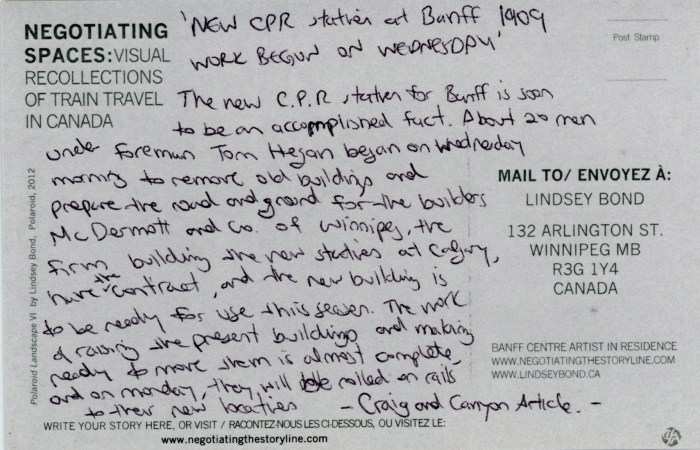 NEGOTIATING
SPACES: VISUAL
RECOLLECTIONS
OF TRAIN TRAVEL
IN CANADA
'NEW CPR station at Banff 1909
WORK BEGUN ON WEDNESDAY'
Post Stamp
The new C.P.R station for Banff is soon
to be an accomplished fact. About 20 men
under foreman Tom Hegan began on Wednesday
morning to remove old buildings and
prepare the road and ground for the builders
McDermott and Co. of Winnipeg, the
firm building the new station at Calgary,
have the contract, and the new building is
to be ready for use this season. The work
of raising the present buildings and making
ready to move them is almost complete,
and on monday, they will be rolled on rails
to their new locations - Craig and Canyon Article. -
MAIL TO/ ENVOYEZ À:
LINDSEY BOND
132 ARLINGTON ST.
WINNIPEG MB
R3G 1Y4
CANADA
BANFF CENTRE ARTIST IN RESIDENCE
WWW.NEGOTIATINGTHESTORYLINE.COM
WWW.LINDSEYBOND.CA
Polaroid Landscape VI by Lindsey Bond, Polaroid, 2012
WRITE YOUR STORY HERE, OR VISIT / RACONTEZ-NOUS LES CI-DESSOUS, OU VISITEZ LE:
www.negotiatingthestoryline.com